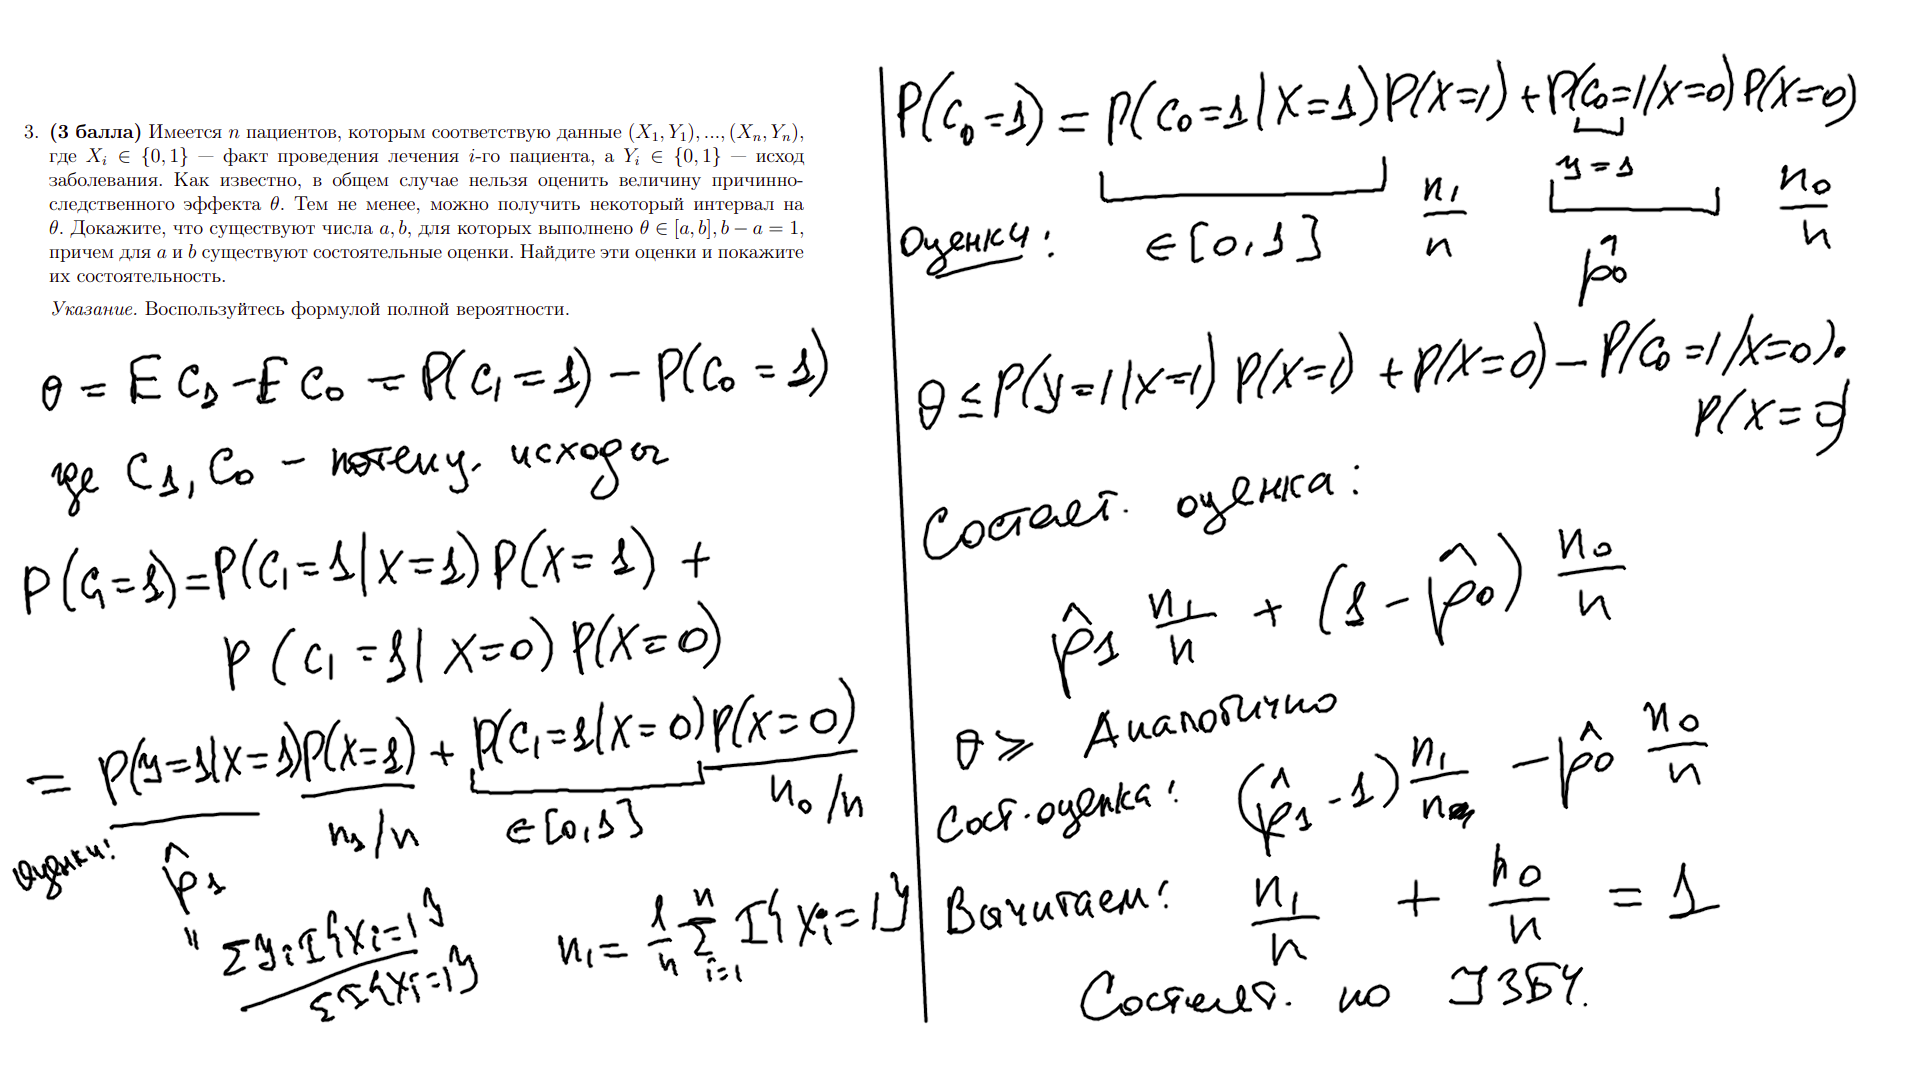 3. (3 балла) Имеется n пациентов, которым соответствую данные (X₁, Y₁), ..., (Xₙ, Yₙ),
где Xᵢ ∈ {0, 1} — факт проведения лечения i-го пациента, а Yᵢ ∈ {0, 1} — исход
заболевания. Как известно, в общем случае нельзя оценить величину причинно-
следственного эффекта θ. Тем не менее, можно получить некоторый интервал на
θ. Докажите, что существуют числа a, b, для которых выполнено θ ∈ [a, b], b − a = 1,
причем для a и b существуют состоятельные оценки. Найдите эти оценки и покажите
их состоятельность.
Указание. Воспользуйтесь формулой полной вероятности.
θ = E C₁ − E C₀ = P(C₁ = 1) − P(C₀ = 1)
где C₁, C₀ − потенц. исходы
P(C₁=1) = P(C₁=1|X=1) P(X=1) +
P(C₁=1|X=0) P(X=0)
= P(y=1|X=1)P(X=1) + P(C₁=1|X=0)P(X=0)
n₁/n ∈ [0,1] n₀/n
Оценки: p̂₁
" Σ yᵢ I{Xᵢ=1} / Σ I{Xᵢ=1}
n₁ = 1/n Σⁿᵢ₌₁ I{Xᵢ=1}
P(C₀=1) = P(C₀=1|X=1)P(X=1) + P(C₀=1|X=0) P(X=0)
y=1
Оценки: ∈ [0,1] n₁/n p̂₀ n₀/n
θ ≤ P(y=1|X=1) P(X=1) + P(X=0) − P(C₀=1|X=0)·
P(X=0)
Состоят. оценка:
p̂₁ n₁/n + (1 − p̂₀) n₀/n
θ ≥ Аналогично
Сост. оценка: (p̂₁ − 1) n₁/n − p̂₀ n₀/n
Вычитаем: n₁/n + n₀/n = 1
Состоят. по УЗБЧ.